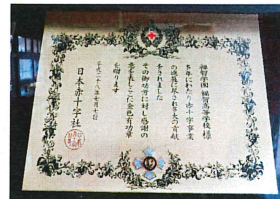 福智学園 福智高等学校 様
多年にわたり赤十字事業
の進展に尽され多大の貢献
をされました
その御功労に対し感謝の
意を表しここに金色有功章
を贈ります
平成二十八年七月七日
日本赤十字社